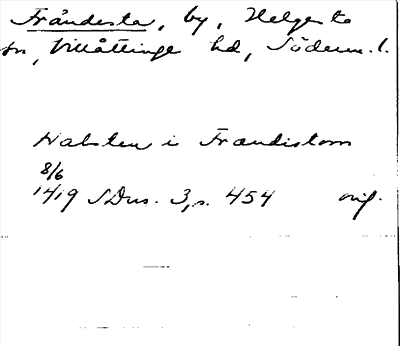 Fråndesta, by, Helgesta
sn, Villåttinge hd, Söderm. l.
Halsten i Frændistom
8/6
1419 SDns. 3, s. 454 orig.